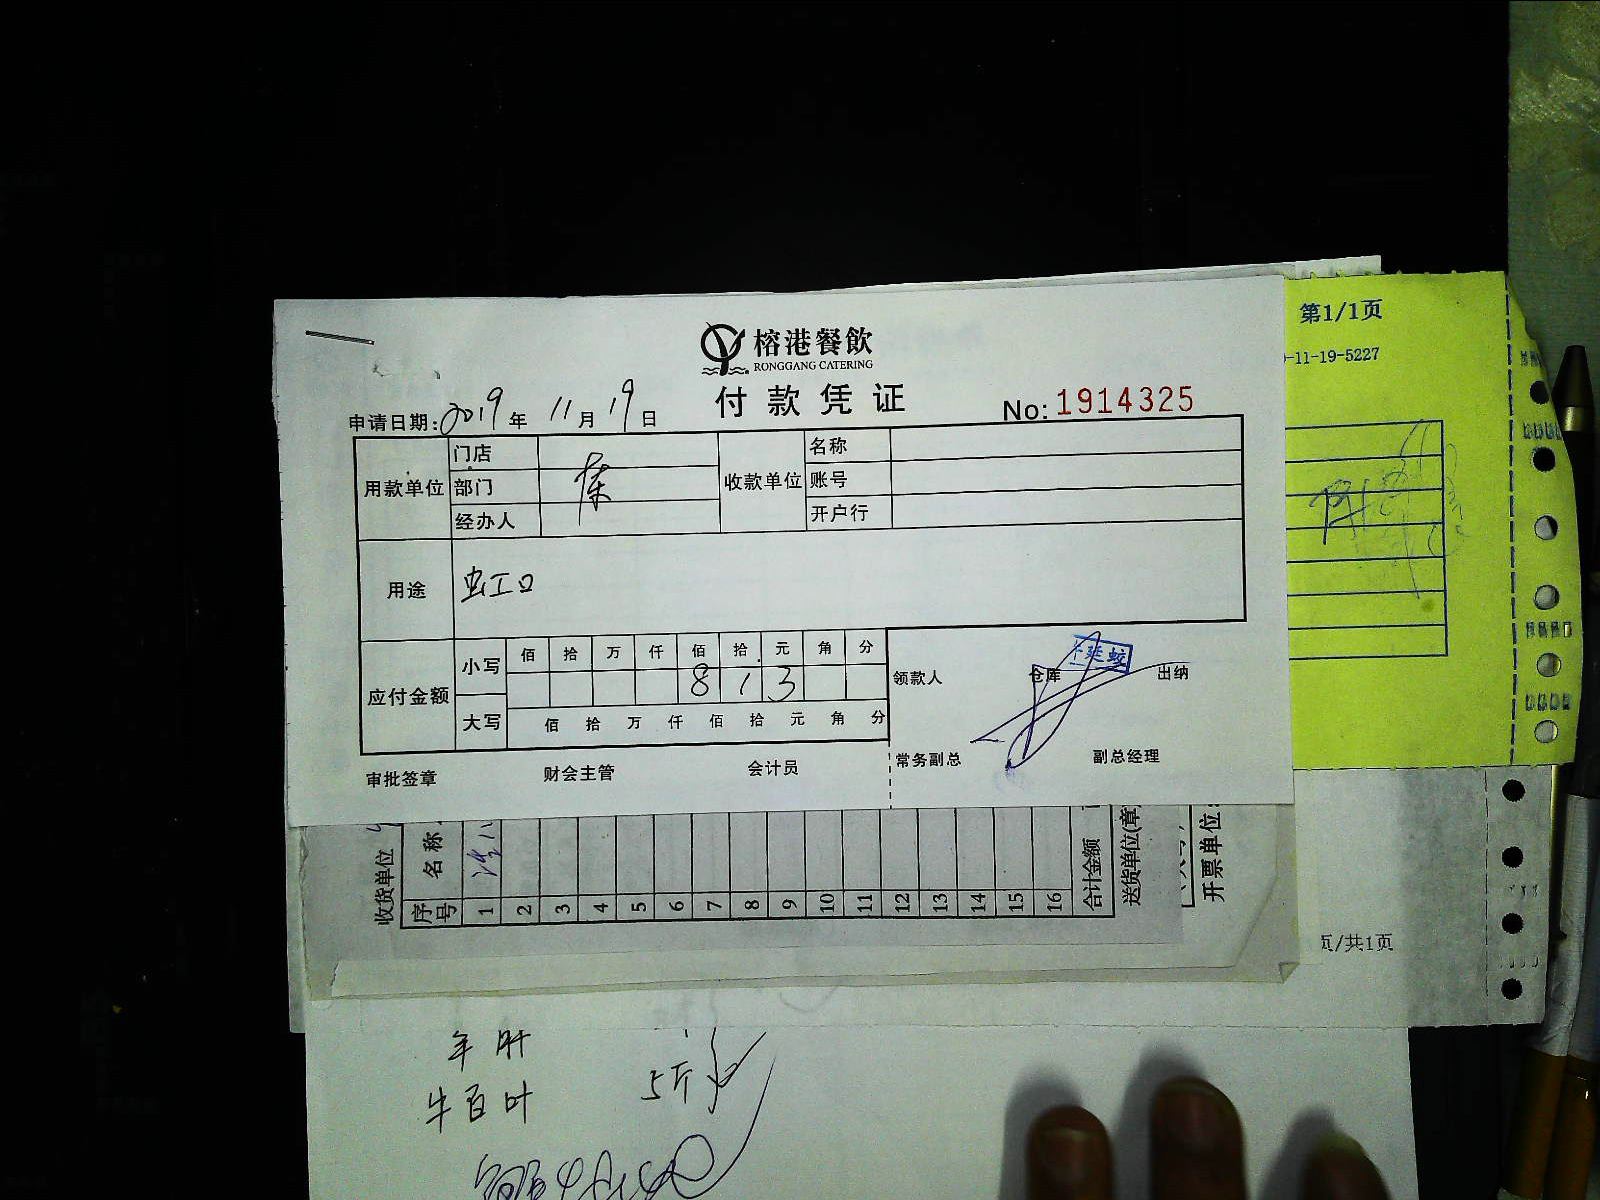 榕港餐飲
RONGGANG CATERING
付款凭证
No: 1914325
申请日期: 2019 年 11 月 19 日
用款单位 门店 收款单位 名称
部门 账号
经办人 开户行
用途 虹口
应付金额 小写 佰 拾 万 仟 佰 拾 元 角 分
8 1 3
大写 佰 拾 万 仟 佰 拾 元 角 分
领款人 仓库 出纳
常务副总 副总经理
审批签章 财会主管 会计员
第1/1页
-11-19-5227
收货单位
序号 名称
1
2
3
4
5
6
7
8
9
10
11
12
13
14
15
16
合计金额
送货单位(章)
开票单位:
页/共1页
羊肝
牛百叶 5斤